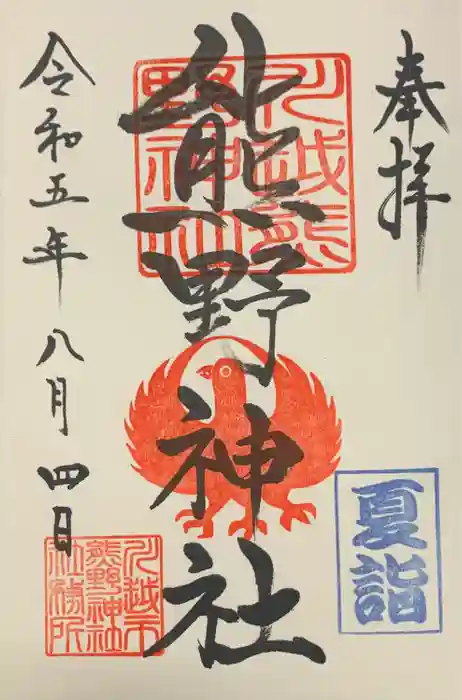 奉拝
川越熊
野神社
熊野神社
夏詣
令和五年八月四日
川越市
熊野神社
社務所